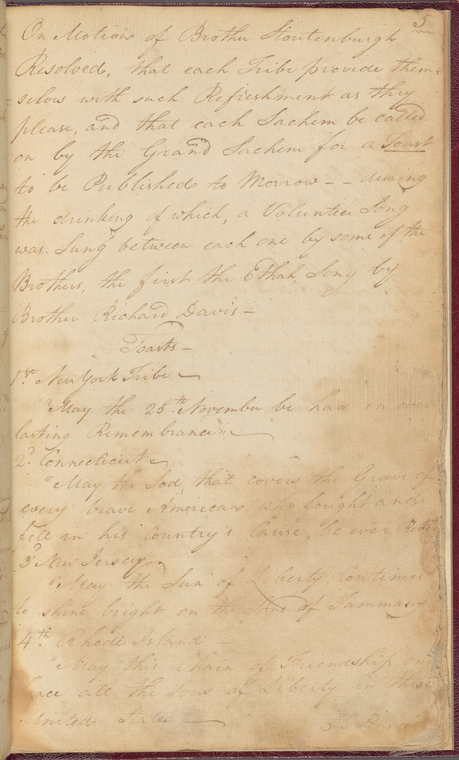 5
On Motion of Brother Stoutenburgh
Resolved, that each Tribe provide them-
selves with such Refreshment as they
please, and that each Sachem be called
on by the Grand Sachem for a Toast
to be Published to Morrow - - during
the drinking of which, a Volunteer Song
was Sung between each one by some of the
Brothers, the first the Ethah Song by
Brother Richard Davis -
Toasts -
1st New York Tribe -
"May the 25th November be had in ever
lasting Remembrance" -
2d Connecticut -
"May the Sod, that covers the Grave of
every brave American who fought and
fell in his Country's Cause, be ever
3d New Jersey -
"May the Sun of Liberty Continue
to shine bright on the Sons of Tammany
4th Rhode Island -
"May this Chain of Friendship em
brace all the Sons of Liberty in these
United States -